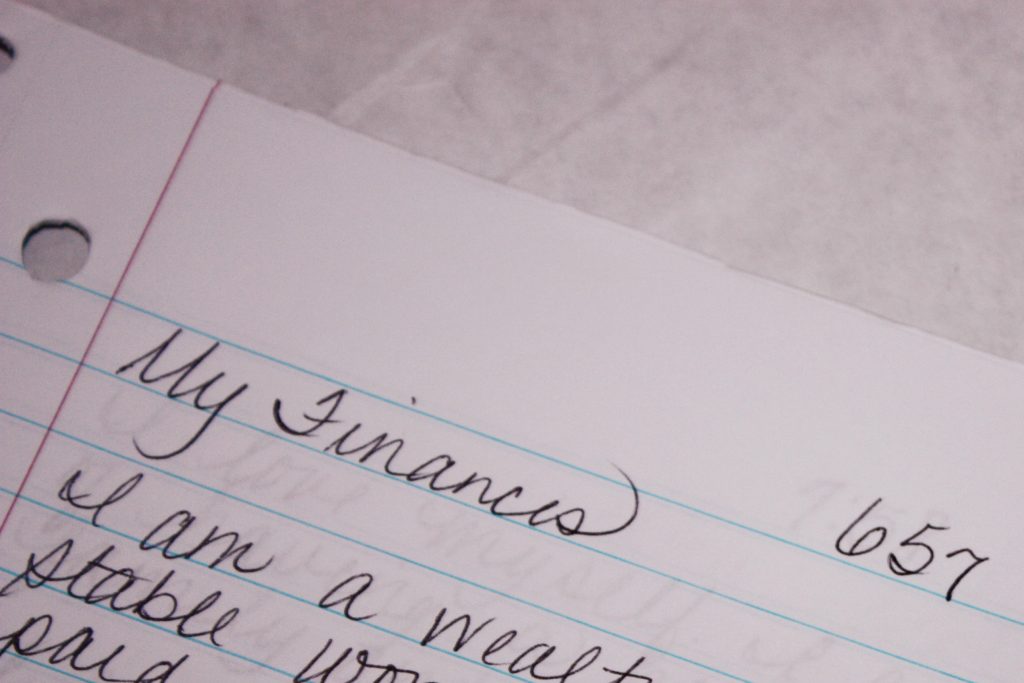 My Finances 657
I am a wealt
stable
paid wo